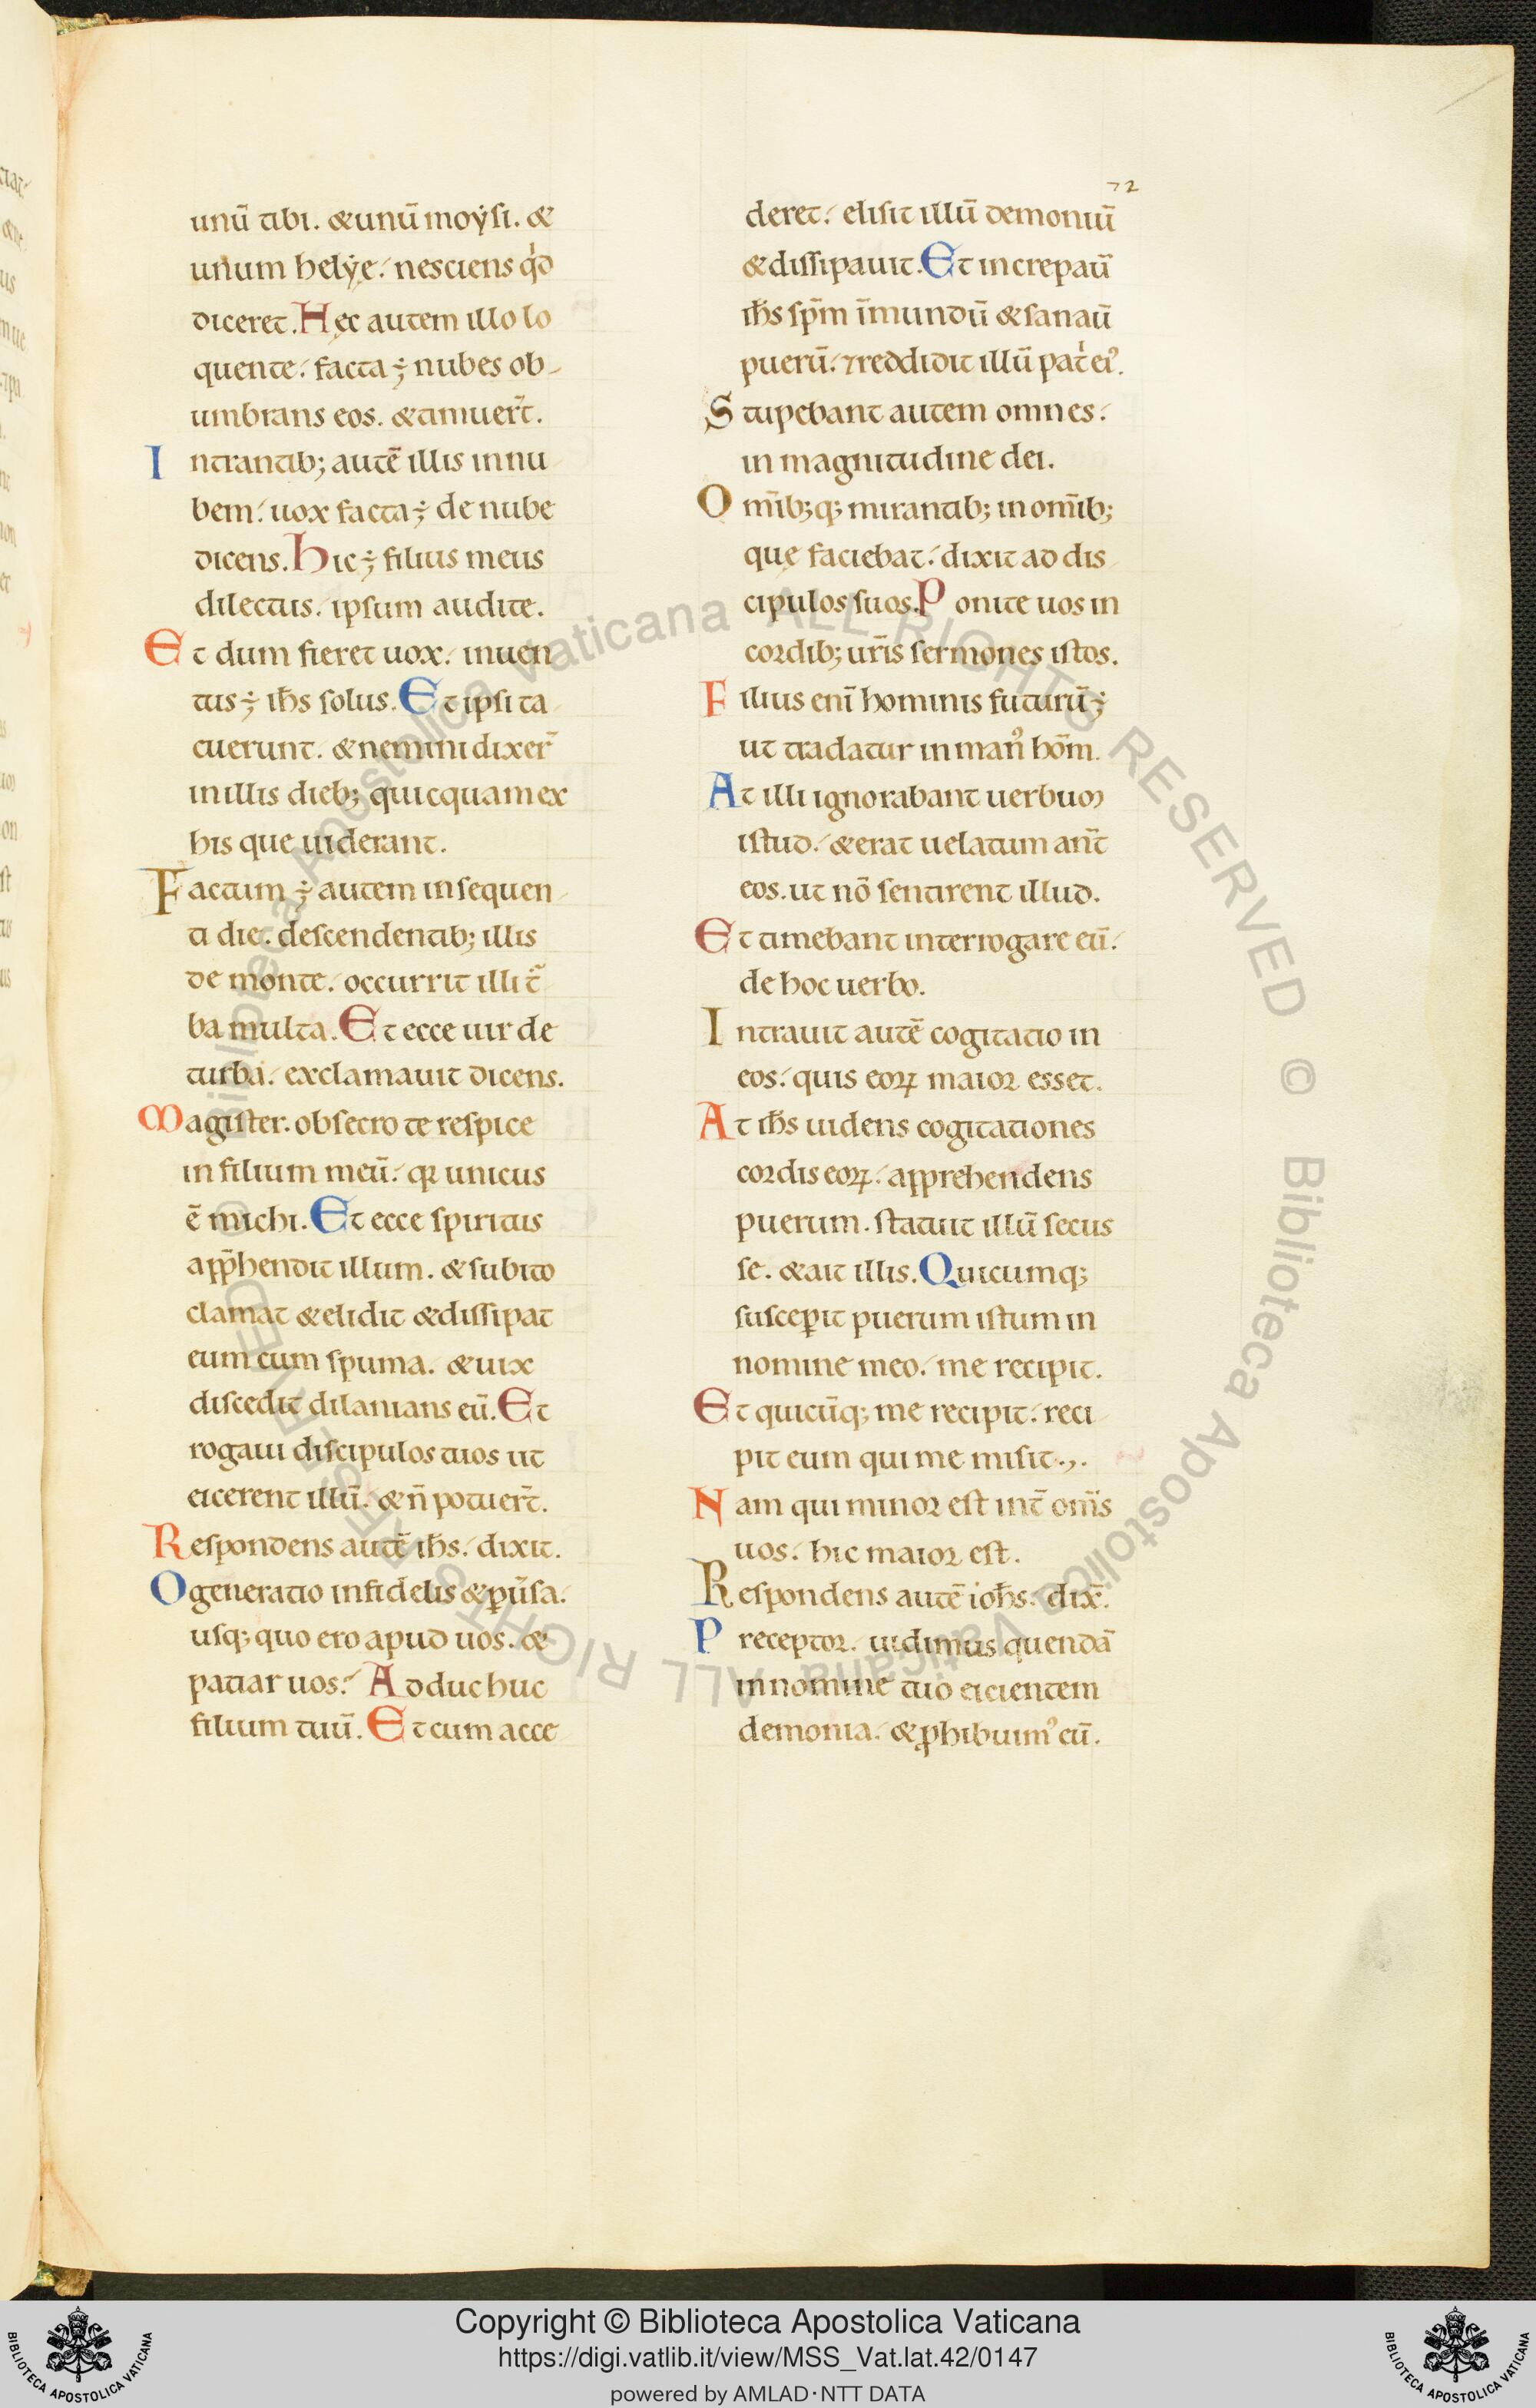 72
unū tibi. & unū moẏsi. &
unum helẏe. nesciens qͥd
diceret. Hęc autem illo lo
quente. facta ÷ nubes ob-
umbrans eos. & timuer̄t.
Intrantib; autē illis in nu
bem. uox facta ÷ de nube
dicens. Hic ÷ filius meus
dilectus. ipsum audite.
Et dum fieret uox. inuen
tus ÷ ih̄s solus. Et ipsi ta
cuerunt. & nemini dixer̄
in illis dieb; quicquam ex
his que uiderant.
Factum ÷ autem in sequen
ti die. descendentib; illis
de monte. occurrit illi t̄
ba multa. Et ecce uir de
turba. exclamauit dicens.
Magister. obsecro te respice
in filium meū. qꝛ unicus
ē michi. Et ecce spiritus
app̄hendit illum. & subito
clamat & elidit & dissipat
eum cum spuma. & uix
discedit dilanians eū. Et
rogaui discipulos tuos ut
eicerent illū. & n̄ potuer̄t.
Respondens autē ih̄s. dixit.
O generatio infidelis & ꝑūsa.
usq; quo ero apud uos. &
patiar uos? Adduc huc
filium tuū. Et cum acce
deret. elisit illū demoniū
& dissipauit. Et increpaū
ih̄s sp̄m īmundū & sanaū
puerū. ⁊ reddidit illū pat̓ ei᾽.
Stupebant autem omnes.
in magnitudine dei.
Om̄ib;q; mirantib; in om̄ib;
quę faciebat. dixit ad dis
cipulos suos. Ponite uos in
cordib; ur̄is sermones istos.
Filius enī hominis futurū ÷
ut tradatur in man᾽ hōm.
At illi ignorabant uerbum
istud. & erat uelatum an̄t
eos. ut nō sentirent illud.
Et timebant interrogare eū.
de hoc uerbo.
Intrauit autē cogitatio in
eos. quis eoꝝ maior esset.
At ih̄s uidens cogitationes
cordis eoꝝ. apprehendens
puerum. statuit illū secus
se. & ait illis. Quicumq;
susceꝑit puerum istum in
nomine meo. me recipit.
Et quicūq; me recipit. reci
pit eum qui me misit.,.
Nam qui minor est int̄ om̄s
uos. hic maior est.
Respondens autē ioh̄s. dix̄.
Preceptor. uidimus quendā
in nomine tuo eicientem
demonia. & ꝓhibuim᾽ eū.
Copyright © Biblioteca Apostolica Vaticana
https://digi.vatlib.it/view/MSS_Vat.lat.42/0147
powered by AMLAD·NTT DATA
BIBLIOTECA APOSTOLICA VATICANA
BIBLIOTECA APOSTOLICA VATICANA
© Biblioteca Apostolica Vaticana ALL RIGHTS RESERVED © Biblioteca Apostolica Vaticana ALL RIGHTS RESERVED